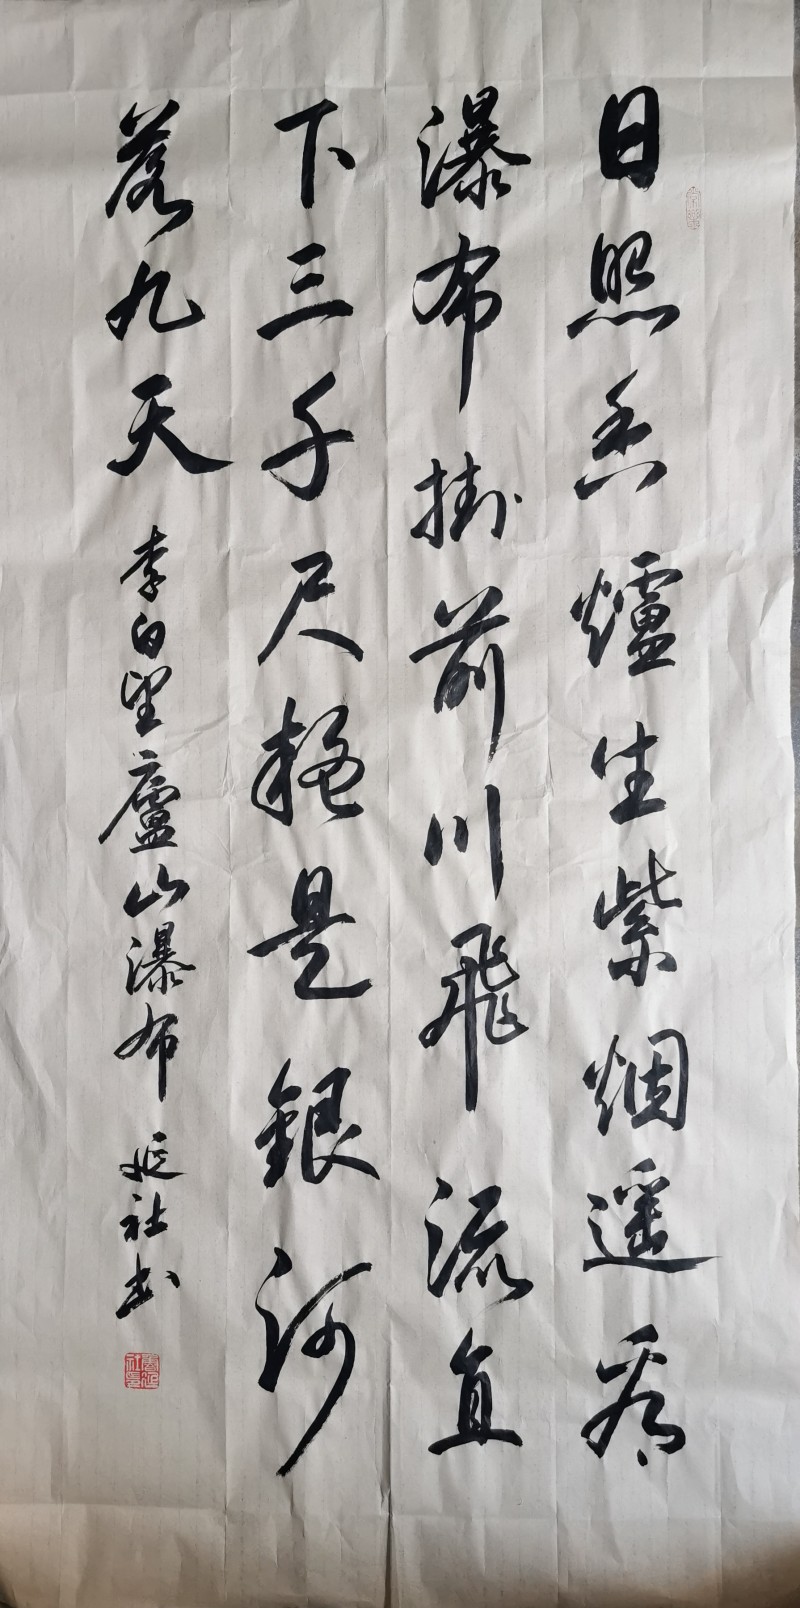 日照香爐生紫烟遥看
瀑布掛前川飛流直
下三千尺疑是銀河
落九天
李白望廬山瀑布 延社书